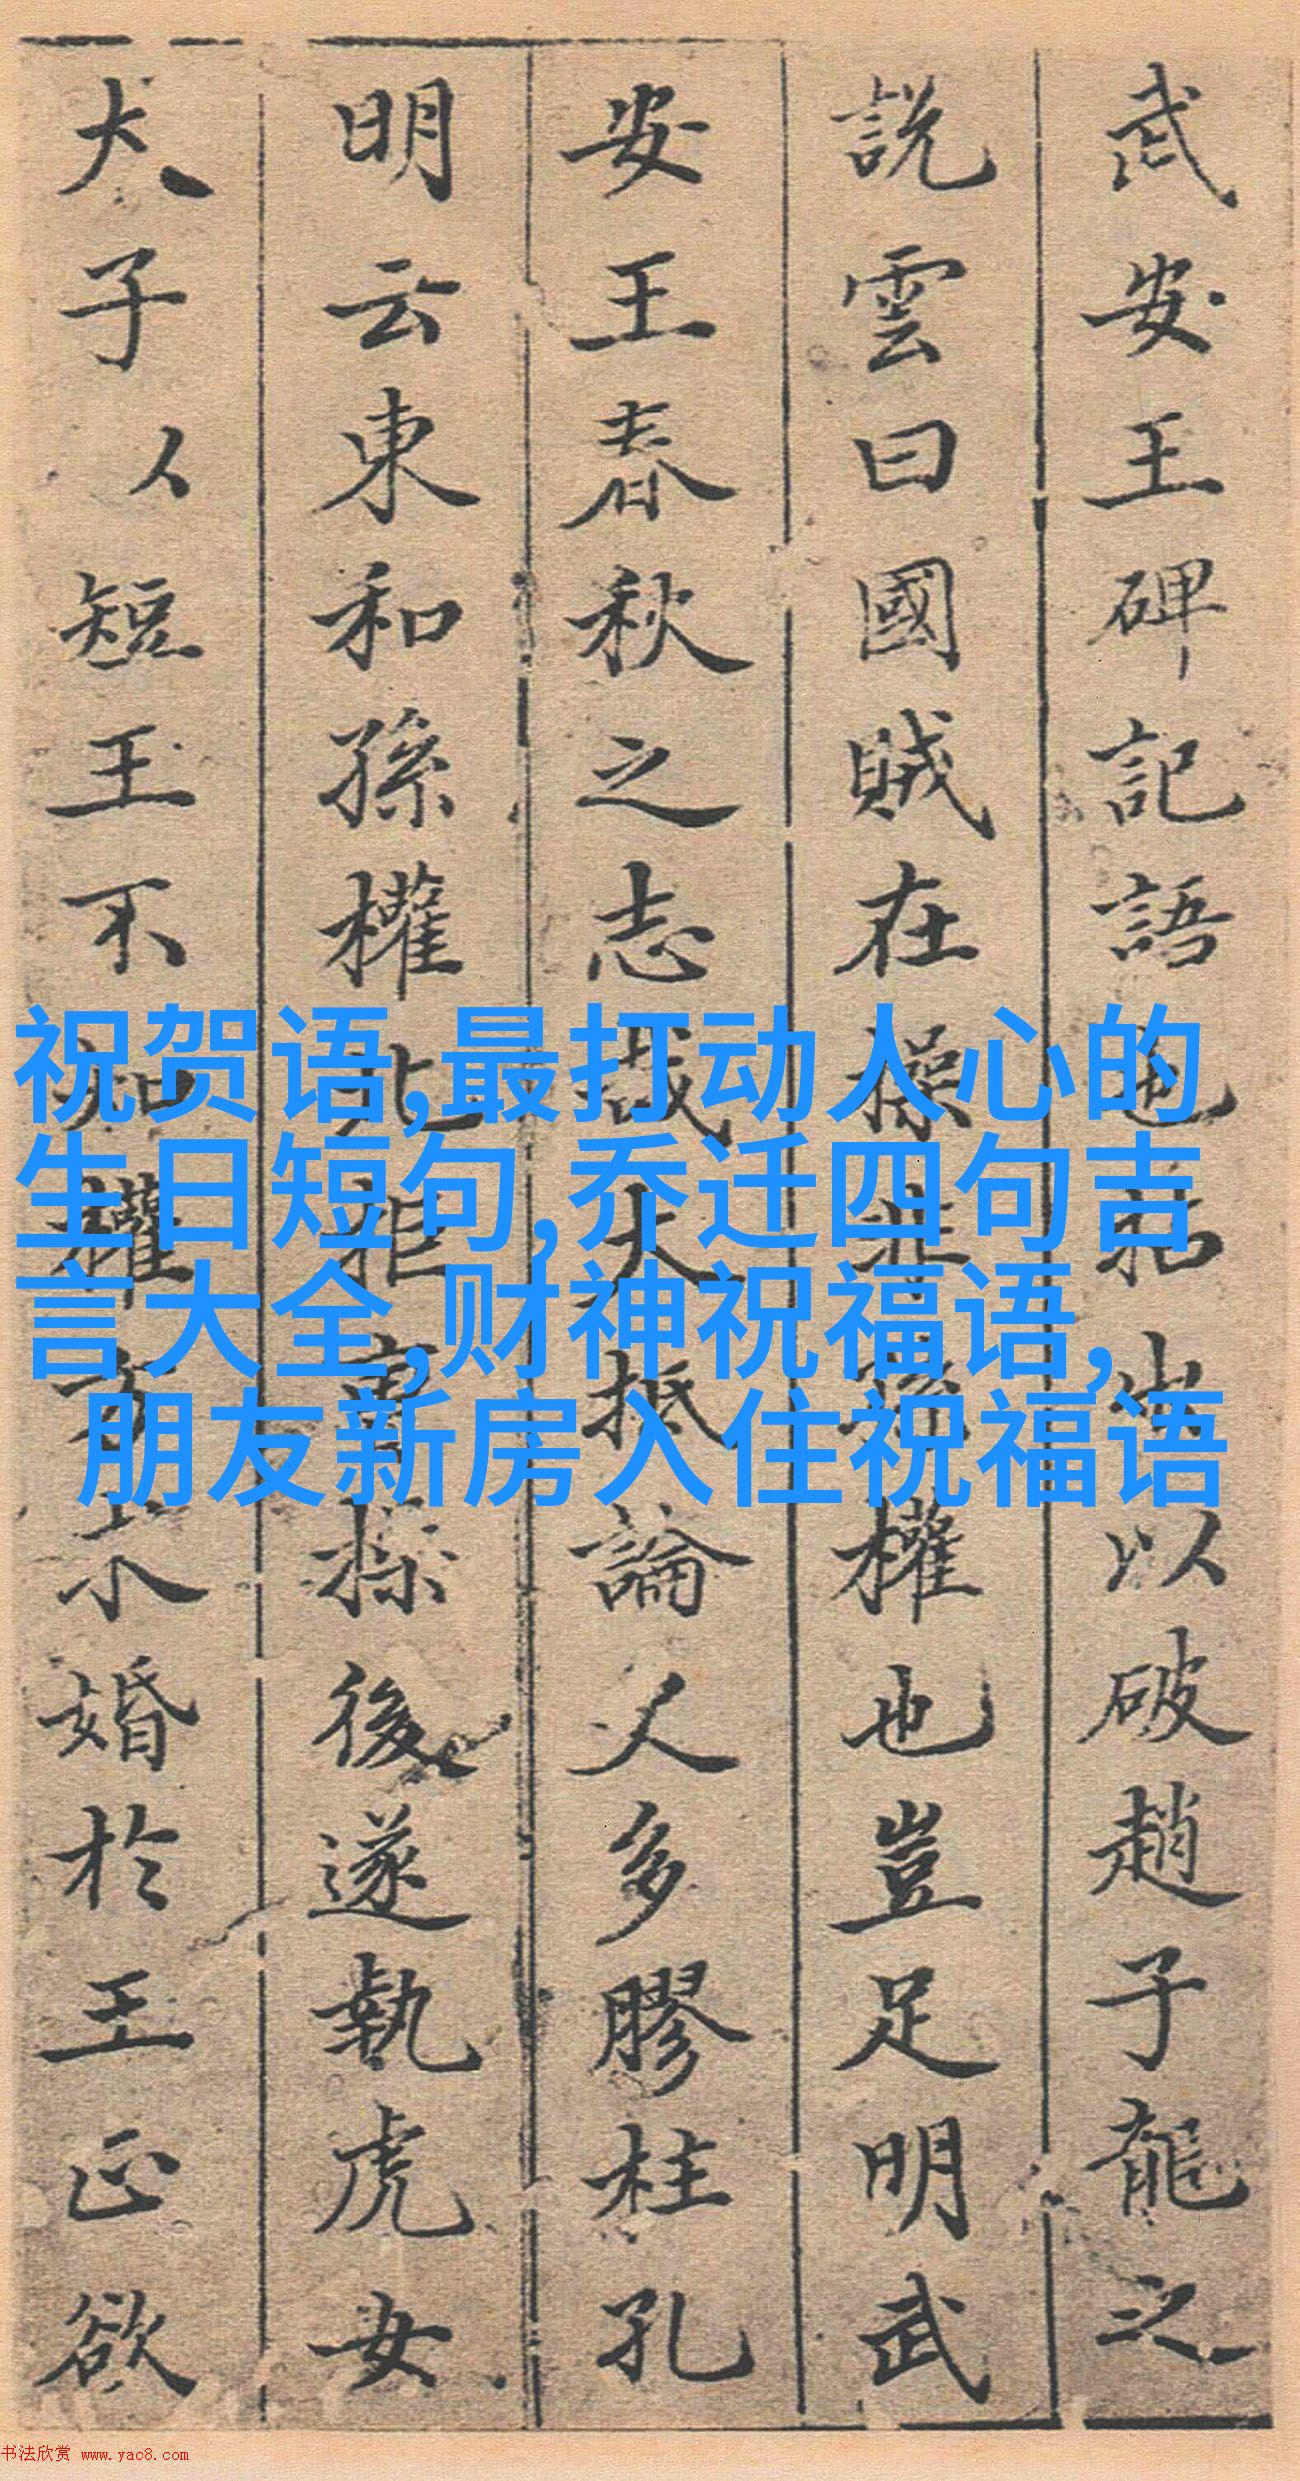 武安王碑記語也拈出以破趙子龍之
說雲曰國賊在操非孫權也豈足明武
安王春秋之志哉大抵論人多膠柱孔
明云東和孫權北拒曹操後遂執虎女
犬子以短王不知權方求婚於王正欲
祝贺语,最打动人心的
生日短句,乔迁四句吉
言大全,财神祝福语,
朋友新房入住祝福语
书法欣赏 www.yac8.com